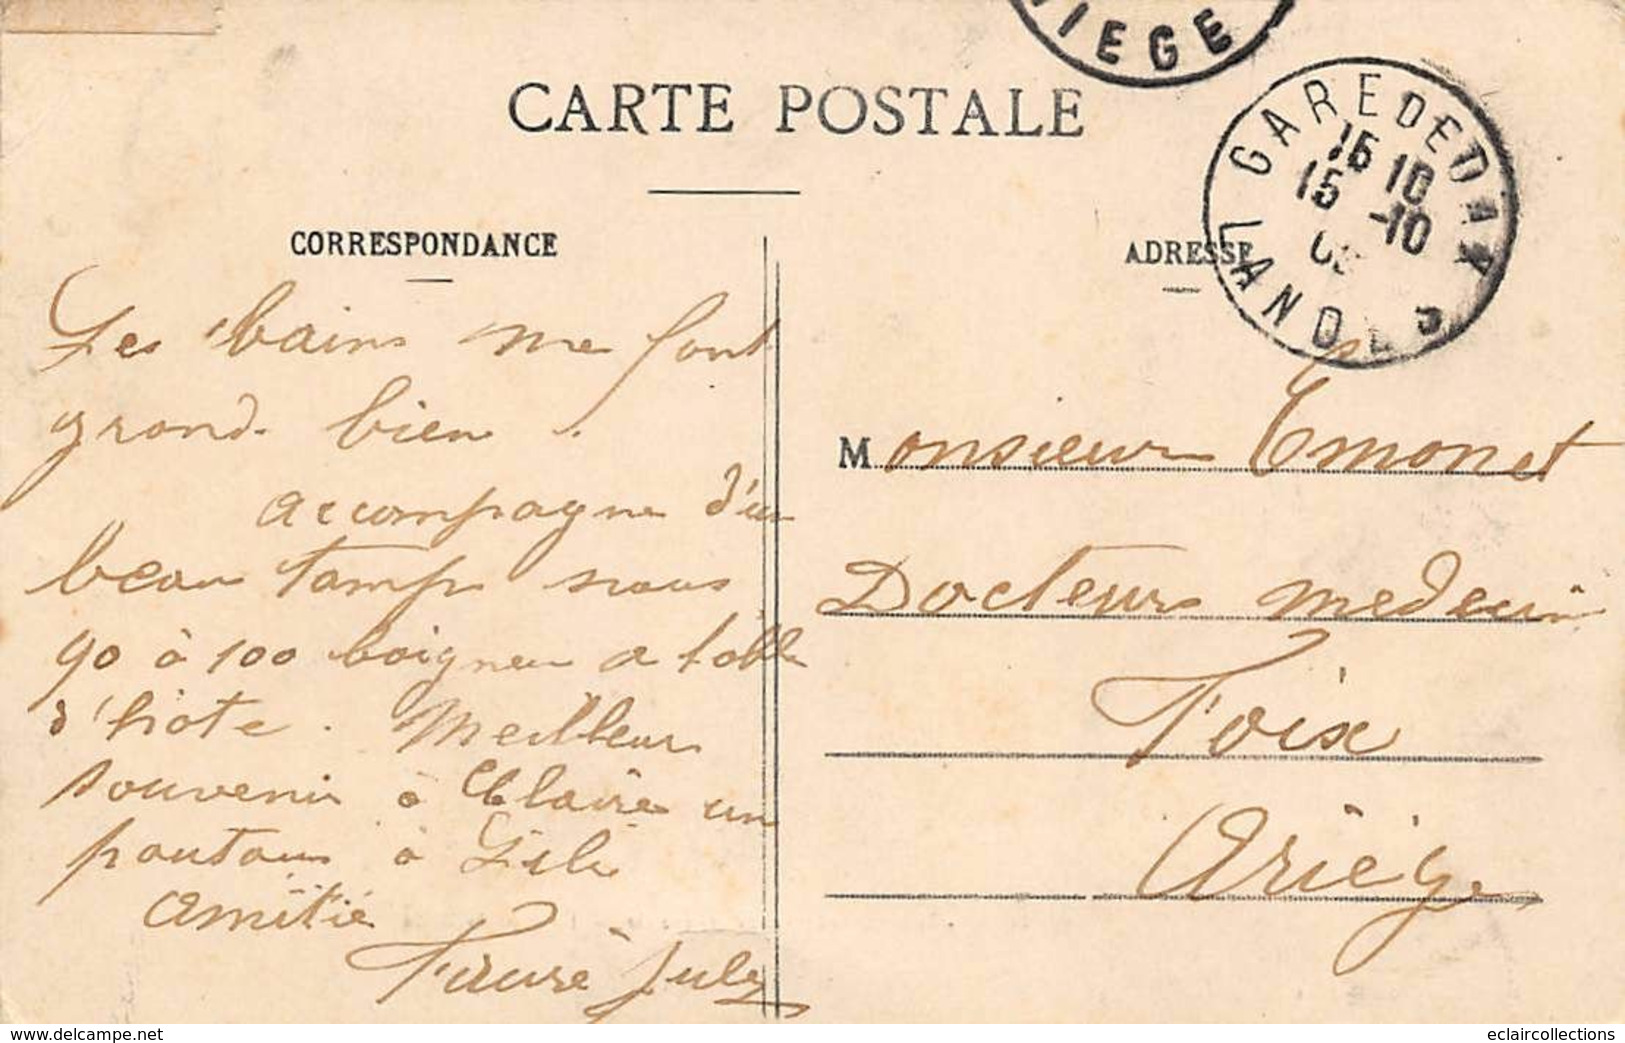 IEGE
CARTE POSTALE
GARE DE DAX
15 10
15 -10
LANDES
CORRESPONDANCE
ADRESSE
Les bains me font
grand bien.
accompagne d'un
beau tamps nous
90 à 100 baigneu a table
d'hote. Meilleur
souvenir à Claire un
poutous à Lili
amitié
Faure July
Monsieur Emonet
Docteur medecin
Foix
Ariège
www.delcampe.net
eclaircollections